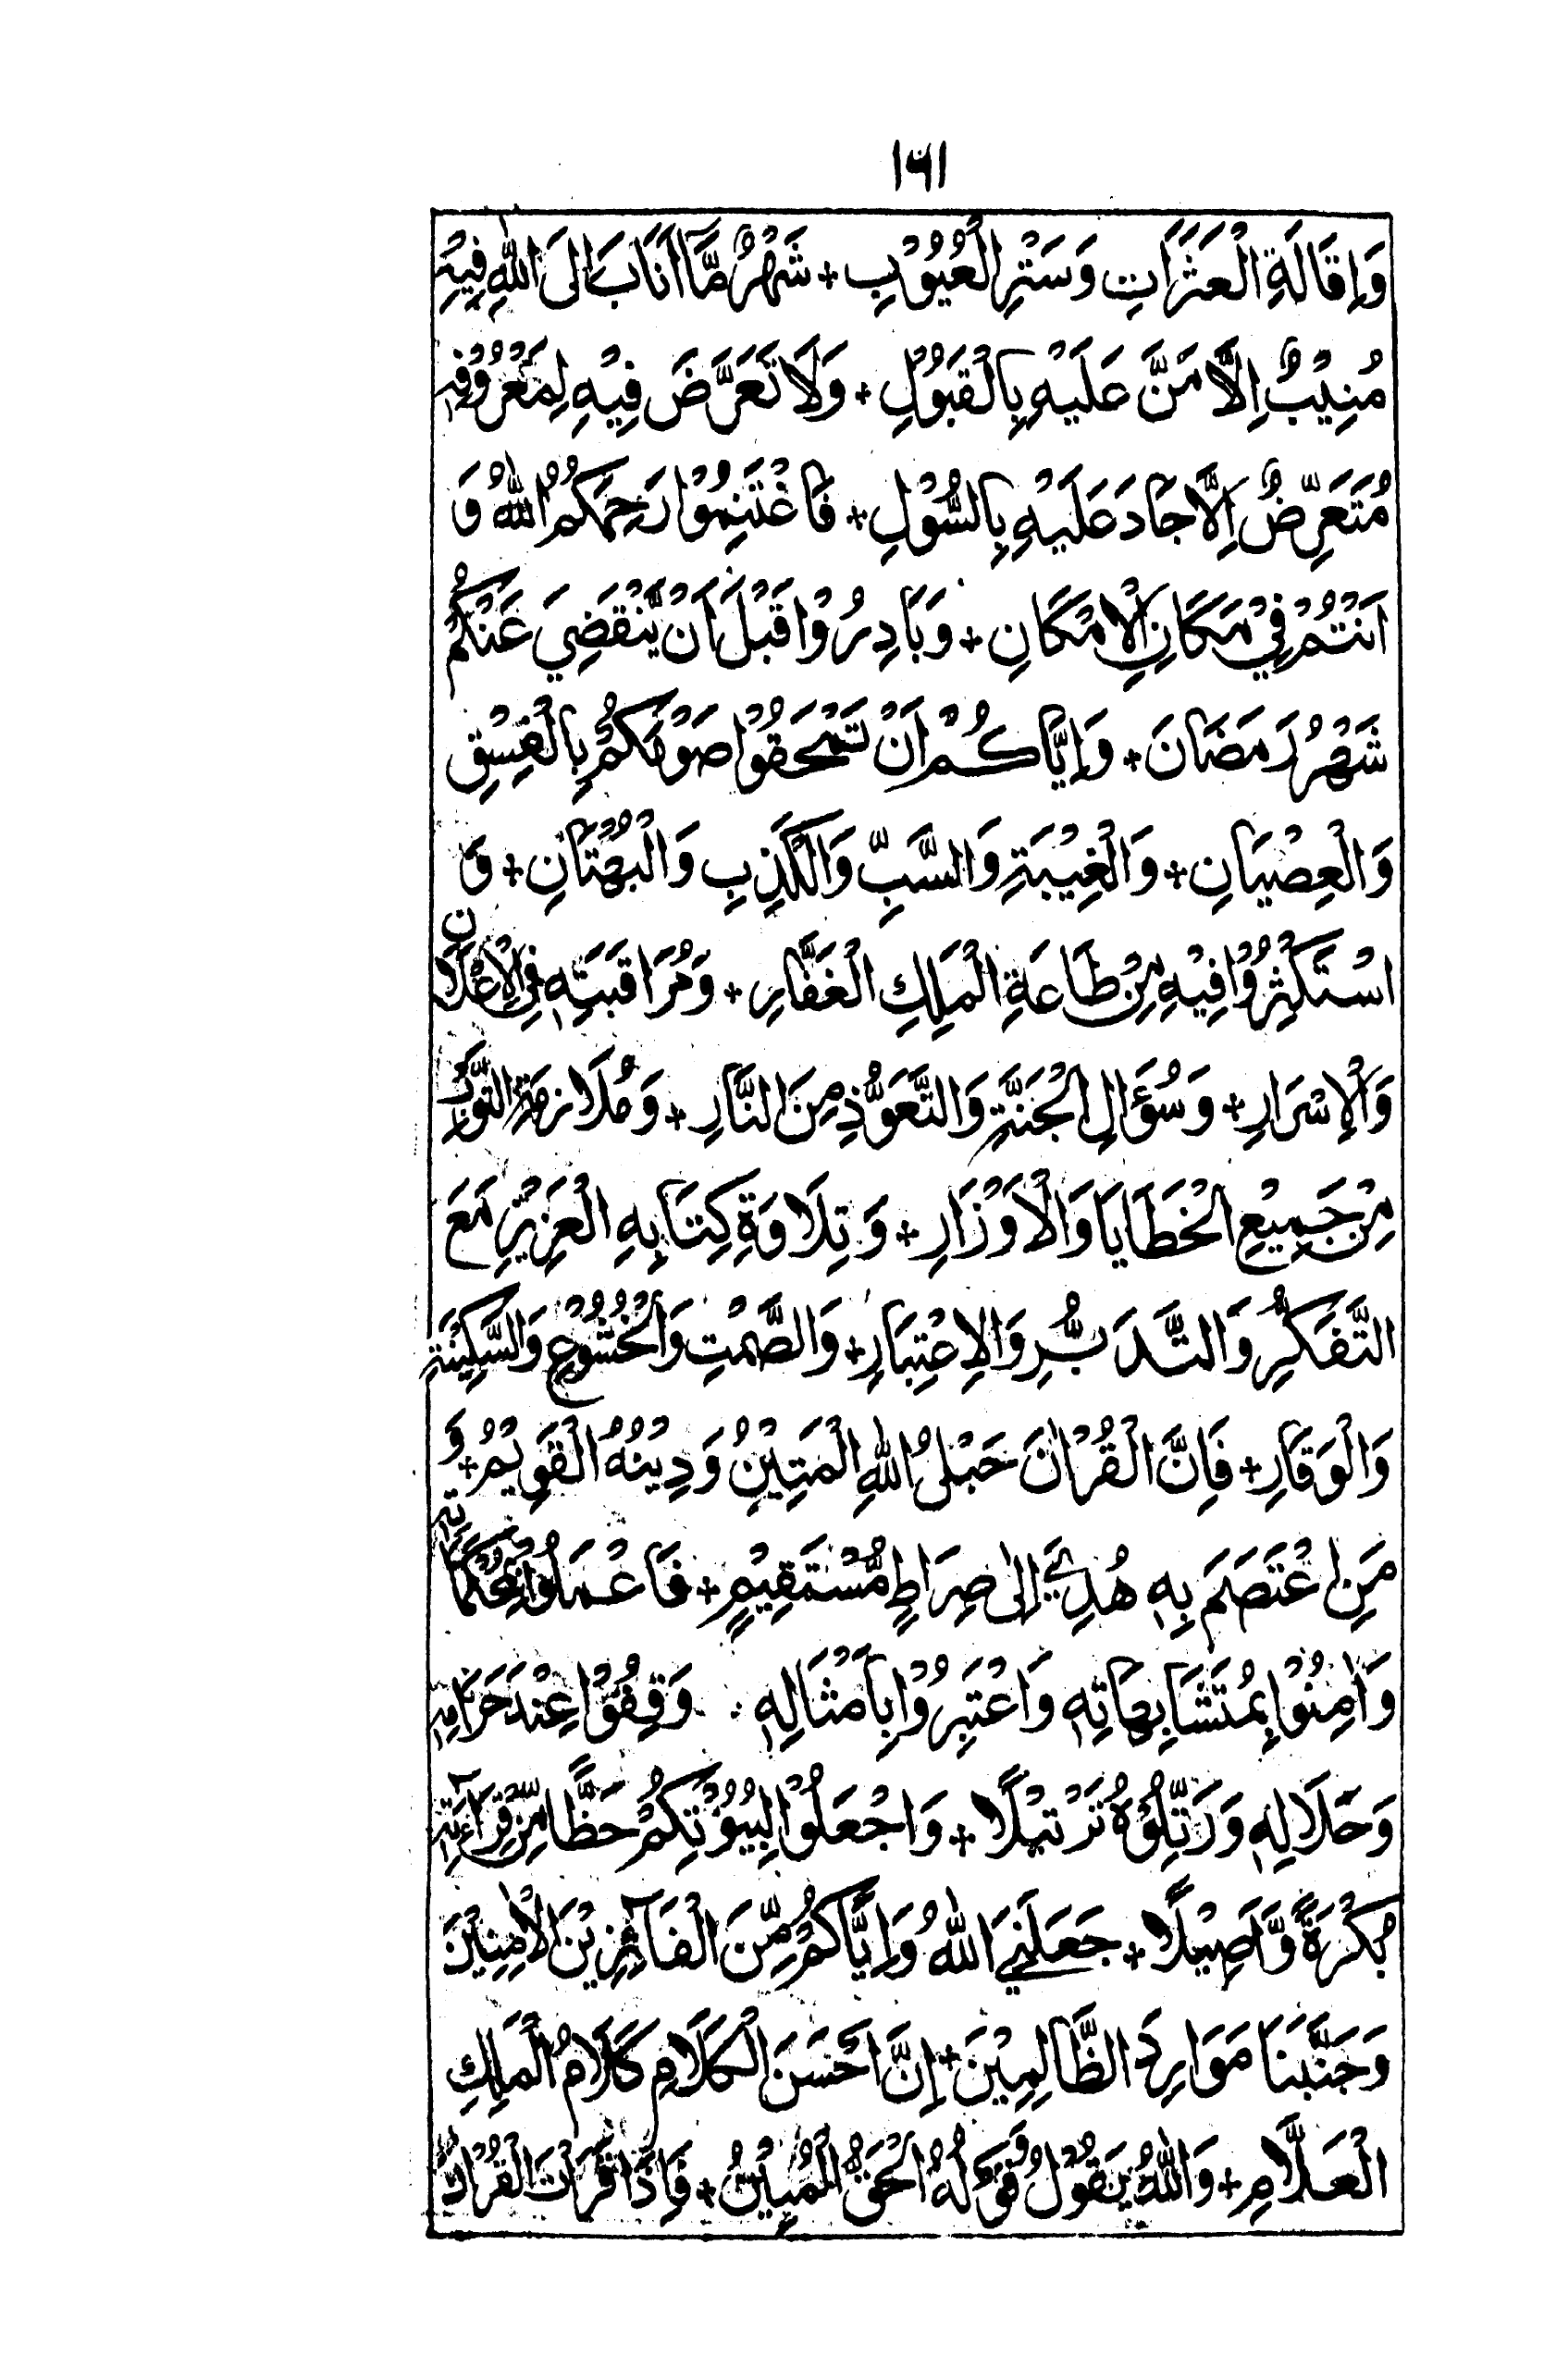 ١٦١
وَاِقَالَةِ الْعَثَرَاتِ وَسَتْرِ الْعُيُوْبِ + شَهْرٌ مَّا اَنَابَ اِلَى اللّٰهِ فِيْهِ
مُنِيْبٌ اِلَّا مَنَّ عَلَيْهِ بِالْقَبُوْلِ + وَلَا تَعَرَّضَ فِيْهِ لِمَعْرُوْفِهٖ
مُتَعَرِّضٌ اِلَّا جَادَ عَلَيْهِ بِالسُّوْلِ + فَاغْتَنِمُوْا رَحِمَكُمُ اللّٰهُ وَ
اَنْتُمْ فِيْ مَكَانِ الْاِمْكَانِ + وَبَادِرُوْا قَبْلَ اَنْ يَّنْقَضِيَ عَنْكُمْ
شَهْرُ رَمَضَانَ + وَاِيَّاكُمْ اَنْ تَمْحَقُوْا صَوْمَكُمْ بِالْفِسْقِ
وَالْعِصْيَانِ + وَالْغِيْبَةِ وَالسَّبِّ وَالْكَذِبِ وَالْبُهْتَانِ + وَ
اسْتَكْثِرُوْا فِيْهِ مِنْ طَاعَةِ الْمَلِكِ الْغَفَّارِ + وَمُرَاقَبَتِهٖ فِي الْاِعْلَانِ
وَالْاِسْرَارِ + وَسُؤَالِ الْجَنَّةِ وَالتَّعَوُّذِ مِنَ النَّارِ + وَمُلَازَمَةِ التَّوْبَةِ
مِنْ جَمِيْعِ الْخَطَايَا وَالْاَوْزَارِ + وَتِلَاوَةِ كِتَابِهِ الْعَزِيْزِ مَعَ
التَّفَكُّرِ وَالتَّدَبُّرِ وَالْاِعْتِبَارِ + وَالصَّمْتِ وَالْخُشُوْعِ وَالسَّكِيْنَةِ
وَالْوَقَارِ + فَاِنَّ الْقُرْاٰنَ حَبْلُ اللّٰهِ الْمَتِيْنُ وَدِيْنُهُ الْقَوِيْمُ + وَ
مَنِ اعْتَصَمَ بِهٖ هُدِيَ اِلٰى صِرَاطٍ مُّسْتَقِيْمٍ + فَاعْمَلُوْا بِمُحْكَمَاتِهٖ
وَاٰمِنُوْا بِمُتَشَابِهَاتِهٖ وَاعْتَبِرُوْا بِاَمْثَالِهٖ وَقِفُوْا عِنْدَ حَرَامِهٖ
وَحَلَالِهٖ وَرَتِّلُوْهُ تَرْتِيْلًا + وَاجْعَلُوْا لِبُيُوْتِكُمْ حَظًّا مِّنْ قِرَآءَتِهٖ
بُكْرَةً وَّاَصِيْلًا + جَعَلَنِيَ اللّٰهُ وَاِيَّاكُمْ مِّنَ الْفَآئِزِيْنَ الْاٰمِنِيْنَ
وَجَنَّبَنَا مَوَارِدَ الظَّالِمِيْنَ + اِنَّ اَحْسَنَ الْكَلَامِ كَلَامُ الْمَلِكِ
الْعَلَّامِ + وَاللّٰهُ يَقُوْلُ وَقَوْلُهُ الْحَقُّ الْمُبِيْنُ + فَاِذَا قَرَأْتَ الْقُرْاٰنَ